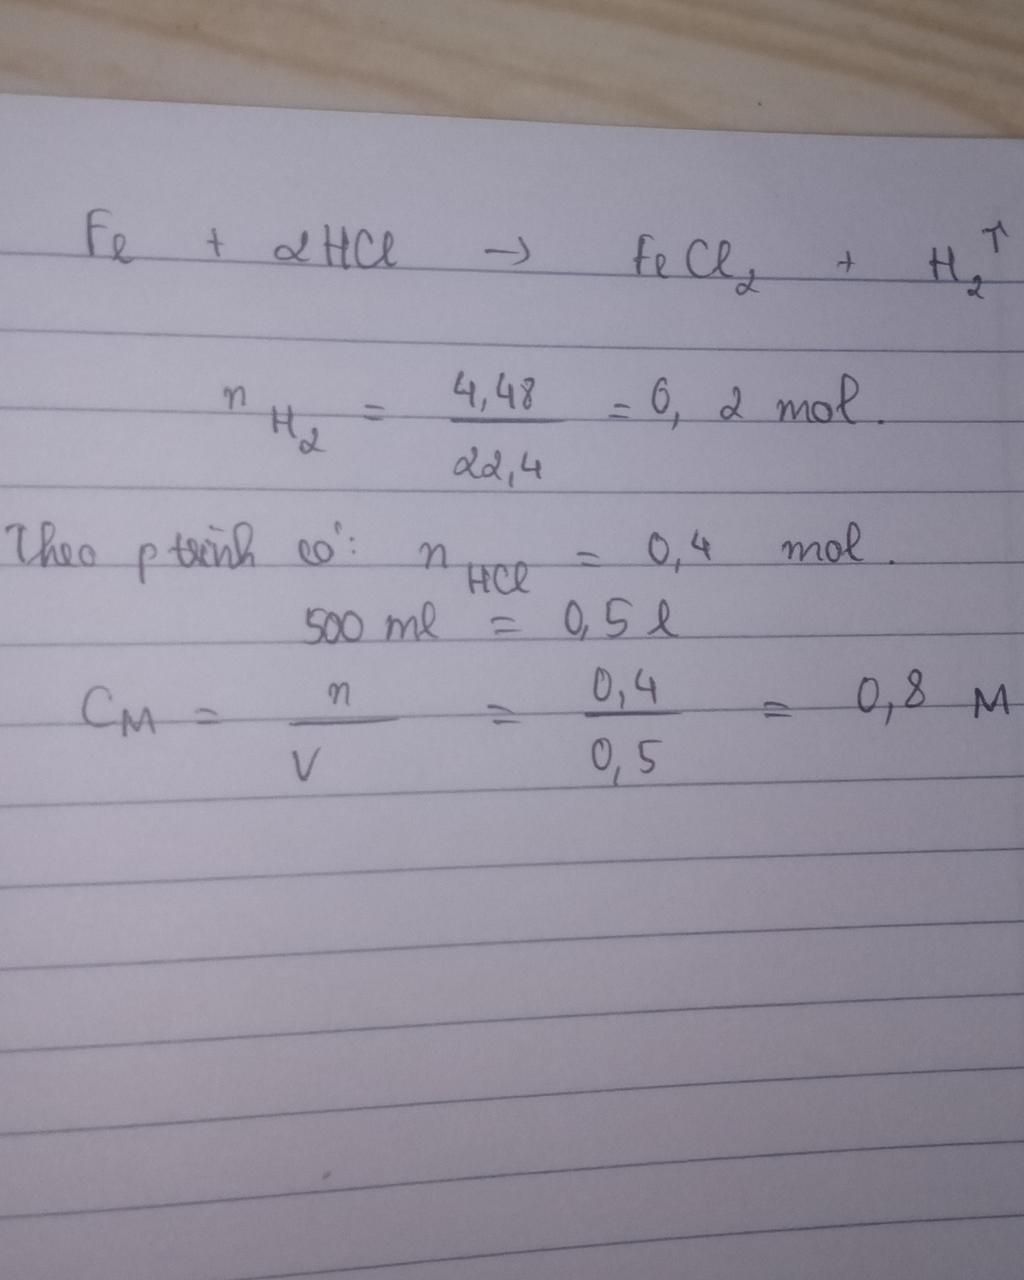 Fe + 2HCl → FeCl₂ + H₂↑
n H₂ = 4,48 / 22,4 = 0,2 mol.
Theo p trình có: n HCl = 0,4 mol.
500 ml = 0,5 l
CM = n / V = 0,4 / 0,5 = 0,8 M